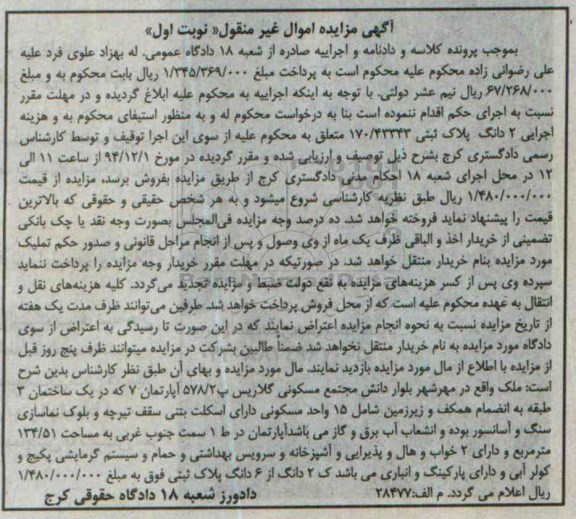 آگهی مزایده اموال غیر منقول« نوبت اول»
بموجب پرونده کلاسه و دادنامه و اجراییه صادره از شعبه ۱۸ دادگاه عمومی. له بهزاد علوی فرد علیه
علی رضوانی زاده محکوم علیه محکوم است به پرداخت مبلغ ۱/۳۴۵/۳۶۹/۰۰۰ ریال بابت محکوم به و مبلغ
۶۷/۲۶۸/۰۰۰ ریال نیم عشر دولتی. با توجه به اینکه اجراییه به محکوم علیه ابلاغ گردیده و در مهلت مقرر
نسبت به اجرای حکم اقدام ننموده است بنا به درخواست محکوم له و به منظور استیفای محکوم به و هزینه
اجرایی ۲ دانگ پلاک ثبتی ۱۷۰/۴۳۳۴۳ متعلق به محکوم علیه از سوی این اجرا توقیف و توسط کارشناس
رسمی دادگستری کرج بشرح ذیل توصیف و ارزیابی شده و مقرر گردیده در مورخ ۹۴/۱۲/۱ از ساعت ۱۱ الی
۱۲ در محل اجرای شعبه ۱۸ احکام مدنی دادگستری کرج از طریق مزایده بفروش برسد، مزایده از قیمت
۱/۴۸۰/۰۰۰/۰۰۰ ریال طبق نظریه کارشناسی شروع میشود و به هر شخص حقیقی و حقوقی که بالاترین
قیمت را پیشنهاد نماید فروخته خواهد شد. ده درصد وجه مزایده فی‌المجلس بصورت وجه نقد یا چک بانکی
تضمینی از خریدار اخذ و الباقی ظرف یک ماه از وی وصول و پس از انجام مراحل قانونی و صدور حکم تملیک
مورد مزایده بنام خریدار منتقل خواهد شد. در صورتیکه در مهلت مقرر خریدار وجه مزایده را پرداخت ننماید
سپرده وی پس از کسر هزینه‌های مزایده به نفع دولت ضبط و مزایده تجدید می‌گردد. کلیه هزینه‌های نقل و
انتقال به عهده محکوم علیه است که از محل فروش پرداخت خواهد شد. طرفین می‌توانند ظرف مدت یک هفته
از تاریخ مزایده نسبت به نحوه انجام مزایده اعتراض نمایند که در این صورت تا رسیدگی به اعتراض از سوی
دادگاه مورد مزایده به نام خریدار منتقل نخواهد شد ضمناً طالبین بشرکت در مزایده میتوانند ظرف پنج روز قبل
از مزایده با اطلاع از مال مورد مزایده بازدید نمایند. مال مورد مزایده و بهای آن طبق نظر کارشناس بدین شرح
است: ملک واقع در مهرشهر بلوار دانش مجتمع مسکونی گلاریس پ۵۷۸/۲ آپارتمان ۷ که در یک ساختمان ۳
طبقه به انضمام همکف و زیرزمین شامل ۱۵ واحد مسکونی دارای اسکلت بتنی سقف تیرچه و بلوک نماسازی
سنگ و آسانسور بوده و انشعاب آب برق و گاز می باشدآپارتمان در ط ۱ سمت جنوب غربی به مساحت ۱۳۴/۵۱
مترمربع و دارای ۲ خواب و هال و پذیرایی و آشپزخانه و سرویس بهداشتی و حمام و سیستم گرمایشی پکیج و
کولر آبی و دارای پارکینگ و انباری می باشد ک ۲ دانگ از ۶ دانگ پلاک ثبتی فوق به مبلغ ۱/۴۸۰/۰۰۰/۰۰۰
ریال اعلام می گردد. م الف:۲۸۴۷۷ دادورز شعبه ۱۸ دادگاه حقوقی کرج